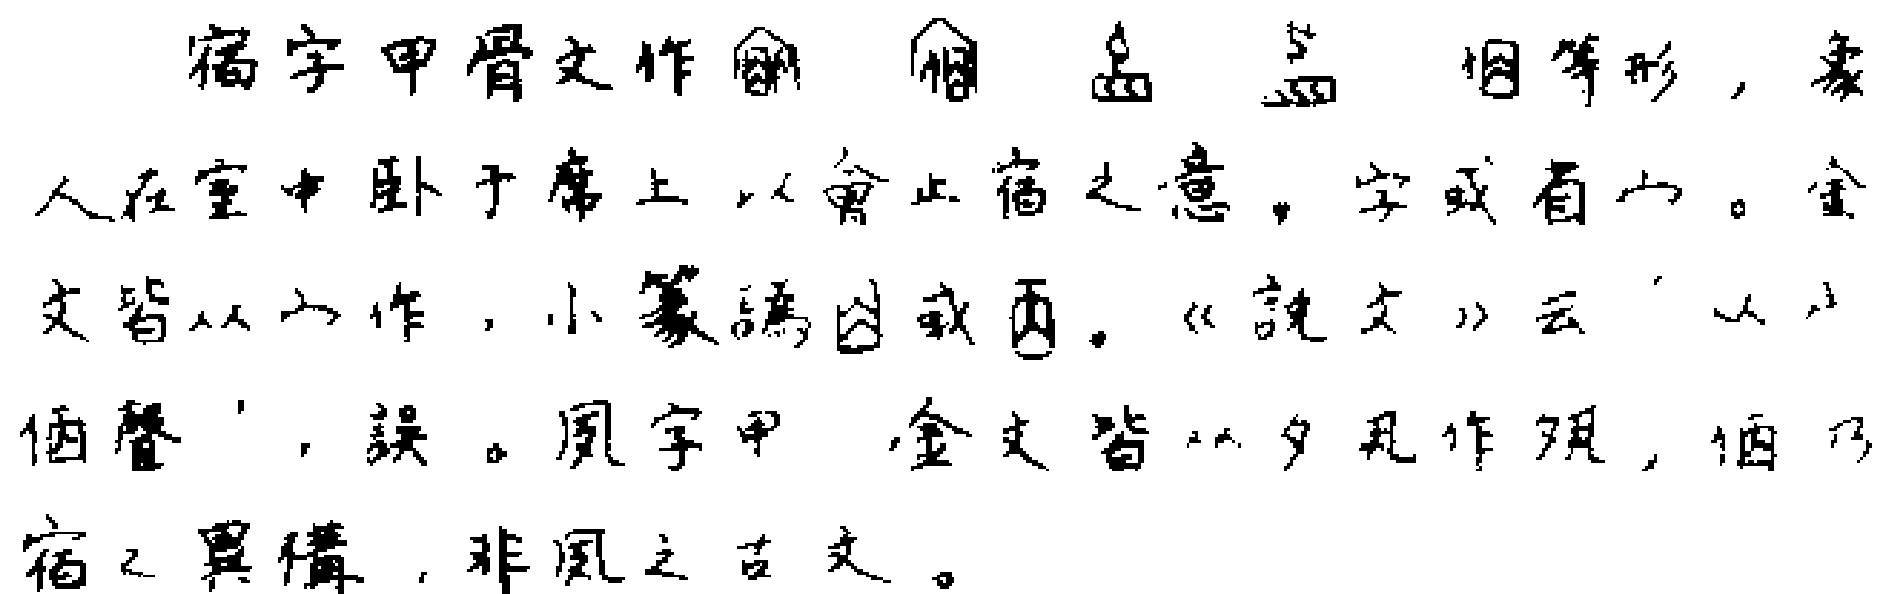 宿字甲骨文作 等形，象
人在室中卧于席上以會止宿之意。字或省宀。金
文皆从宀作，小篆譌 或 。《說文》云‘从宀
佰聲’，誤。夙字甲 金文皆从夕丮作 ，佰乃
宿之異構，非夙之古文。